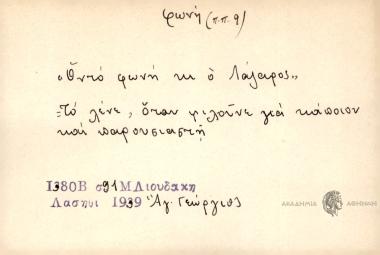 φωνή (π.π. 9)
«Ὄντο φωνή κι ὁ Λάζαρος»
Τό λένε, ὅταν μιλοῦνε γιά κάποιον
καί παρουσιαστῆ
1380Β σ91 Μ Λιουδάκη
Λασηθι 1939 Ἁγ. Γεώργιος
ΑΚΑΔΗΜΙΑ ΑΘΗΝΩΝ